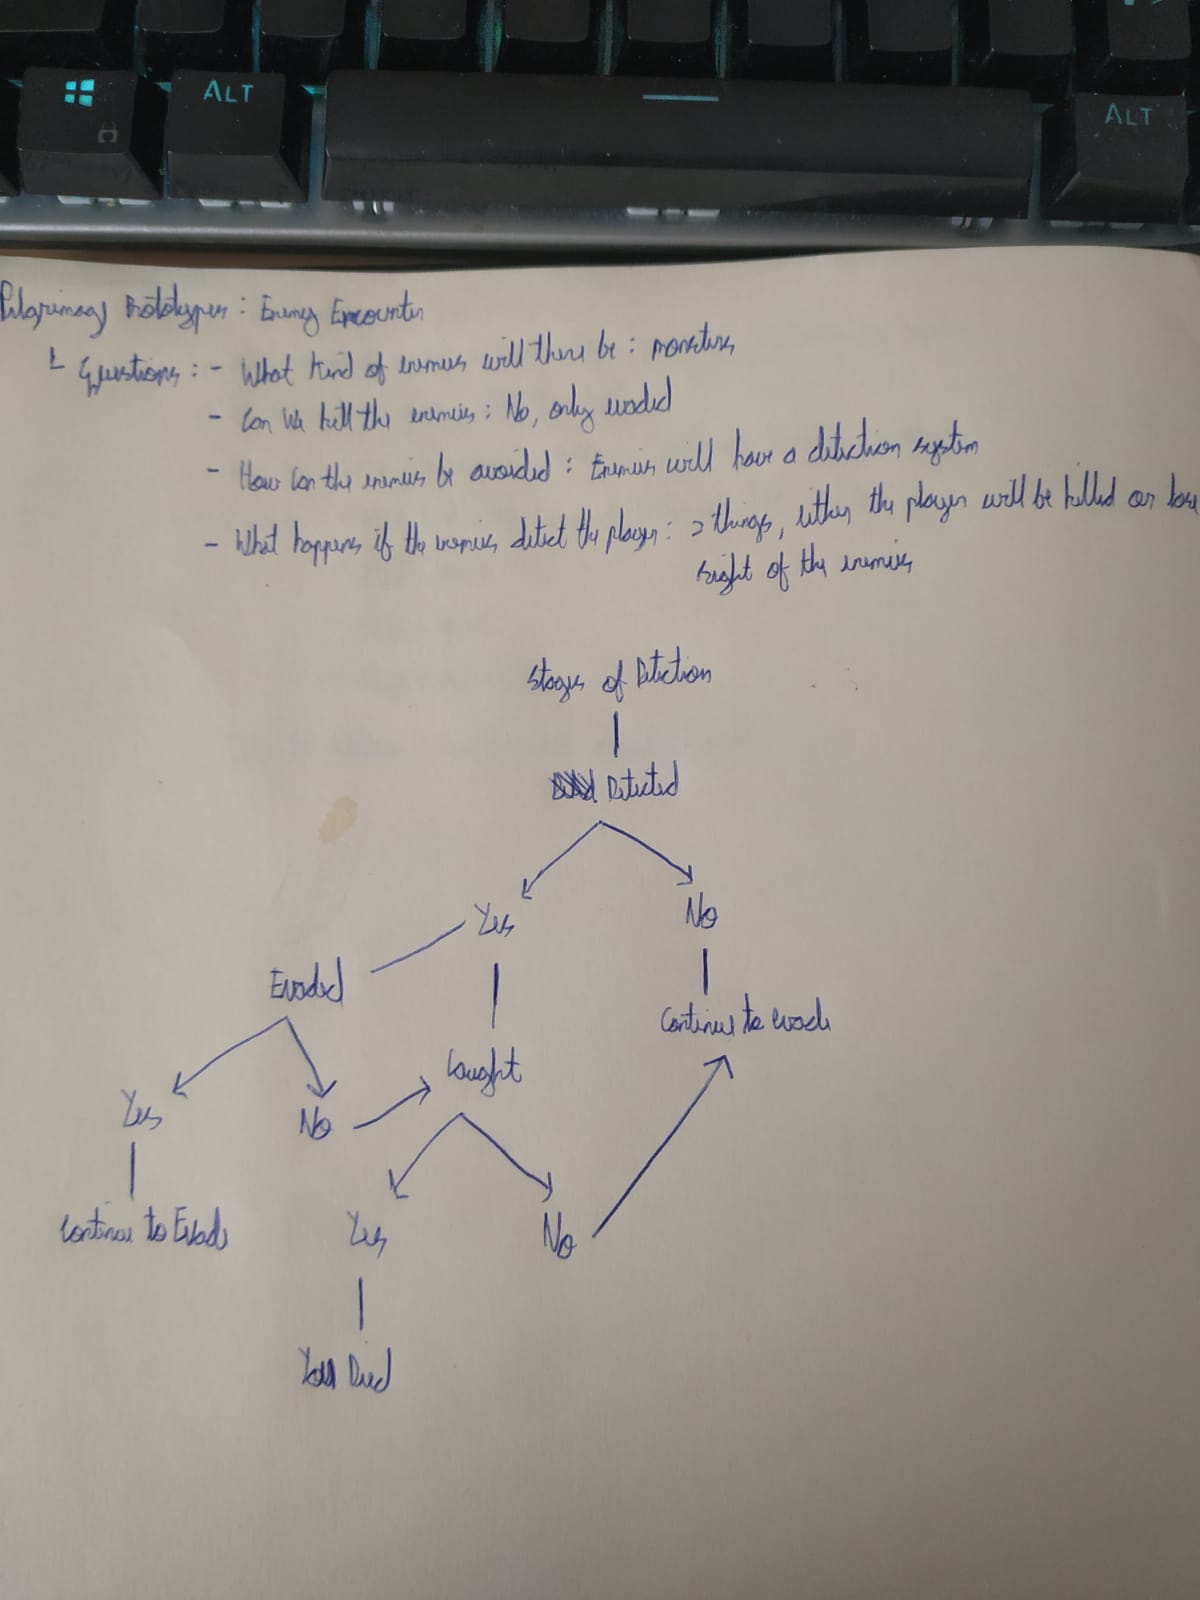 ALT
ALT
Pilgrimag Prototypes : Enemy Encounter
Questions : - What kind of enemies will there be : monsters
- Can we kill the enemies : No, only evaded
- How can the enemies be avoided : Enemies will have a detection system
- What happens if the enemies detect the player : 2 things, either the player will be killed or lose
sight of the enemies
Stages of Detection
Detected
Yes
No
Evaded
Continue to evade
Caught
Yes
No
Continue to Evade
Yes
No
You Died